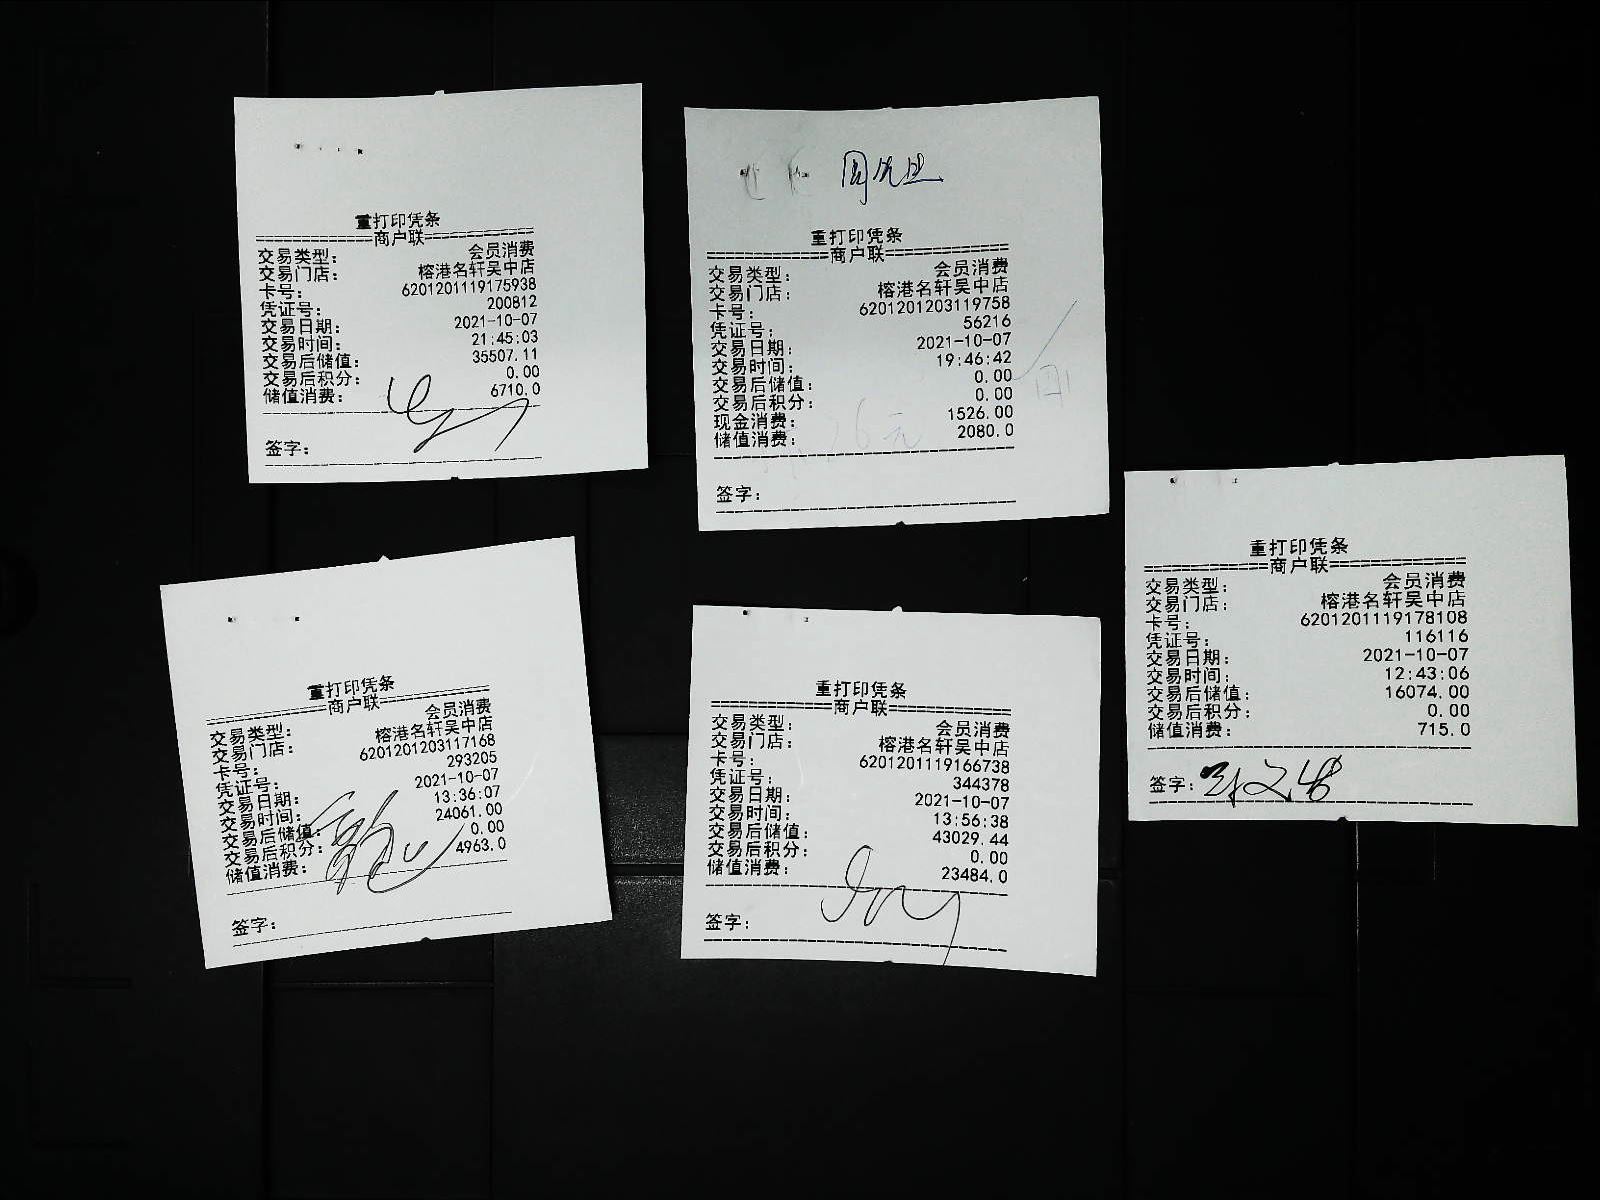 重打印凭条
=============商户联=============
交易类型： 会员消费
交易门店： 榕港名轩吴中店
卡号： 6201201119175938
凭证号： 200812
交易日期： 2021-10-07
交易时间： 21:45:03
交易后储值： 35507.11
交易后积分： 0.00
储值消费： 6710.0
签字：
重打印凭条
=============商户联=============
交易类型： 会员消费
交易门店： 榕港名轩吴中店
卡号： 6201201203119758
凭证号： 56216
交易日期： 2021-10-07
交易时间： 19:46:42
交易后储值： 0.00
交易后积分： 0.00
现金消费： 1526.00
储值消费： 2080.0
签字：
重打印凭条
=============商户联=============
交易类型： 会员消费
交易门店： 榕港名轩吴中店
卡号： 6201201119178108
凭证号： 116116
交易日期： 2021-10-07
交易时间： 12:43:06
交易后储值： 16074.00
交易后积分： 0.00
储值消费： 715.0
签字：
重打印凭条
=============商户联=============
交易类型： 会员消费
交易门店： 榕港名轩吴中店
卡号： 6201201203117168
凭证号： 293205
交易日期： 2021-10-07
交易时间： 13:36:07
交易后储值： 24061.00
交易后积分： 0.00
储值消费： 4963.0
签字：
重打印凭条
=============商户联=============
交易类型： 会员消费
交易门店： 榕港名轩吴中店
卡号： 6201201119166738
凭证号： 344378
交易日期： 2021-10-07
交易时间： 13:56:38
交易后储值： 43029.44
交易后积分： 0.00
储值消费： 23484.0
签字：